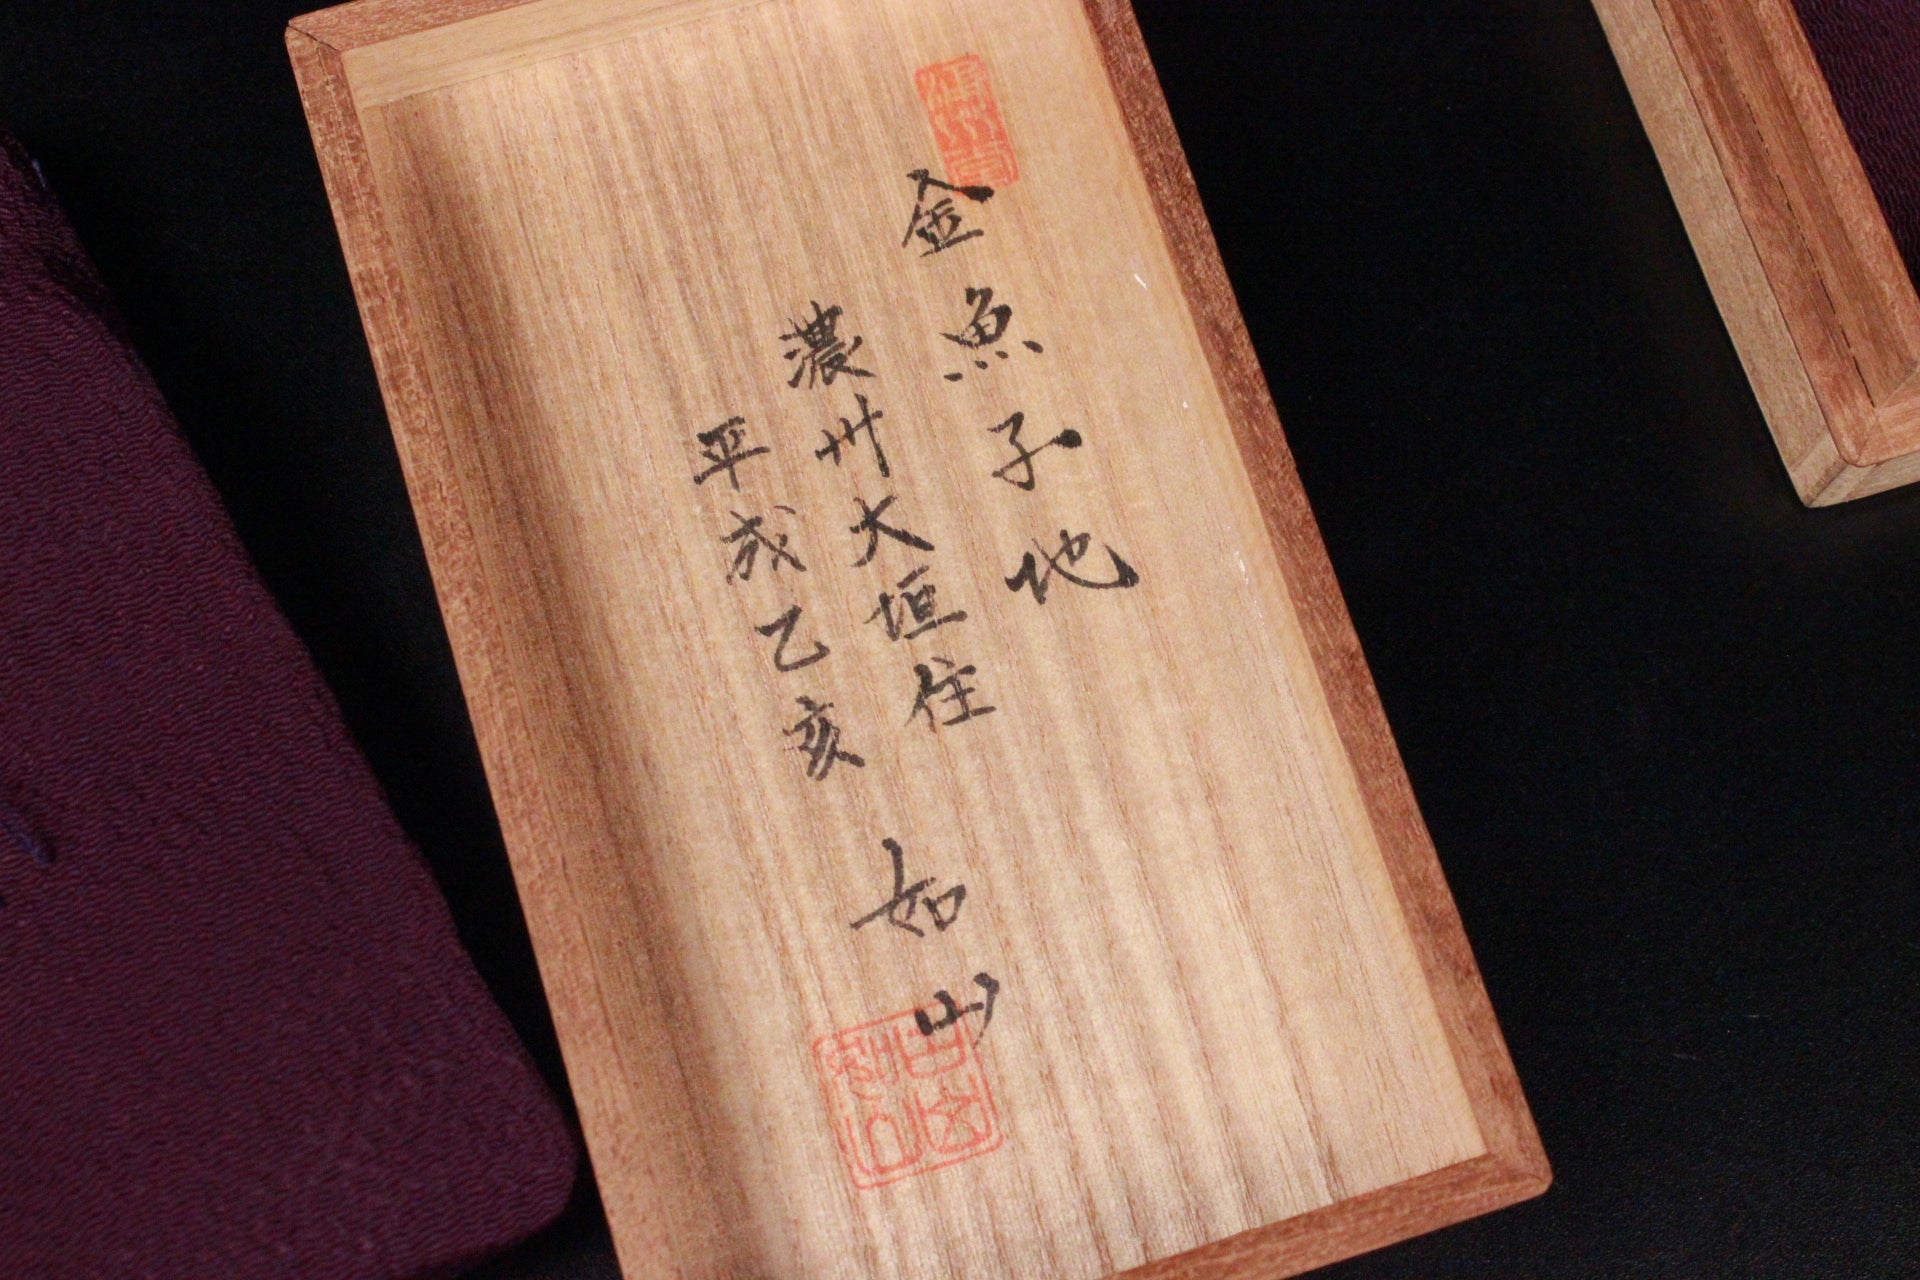 金魚子地
濃州大垣住
平成乙亥
如山